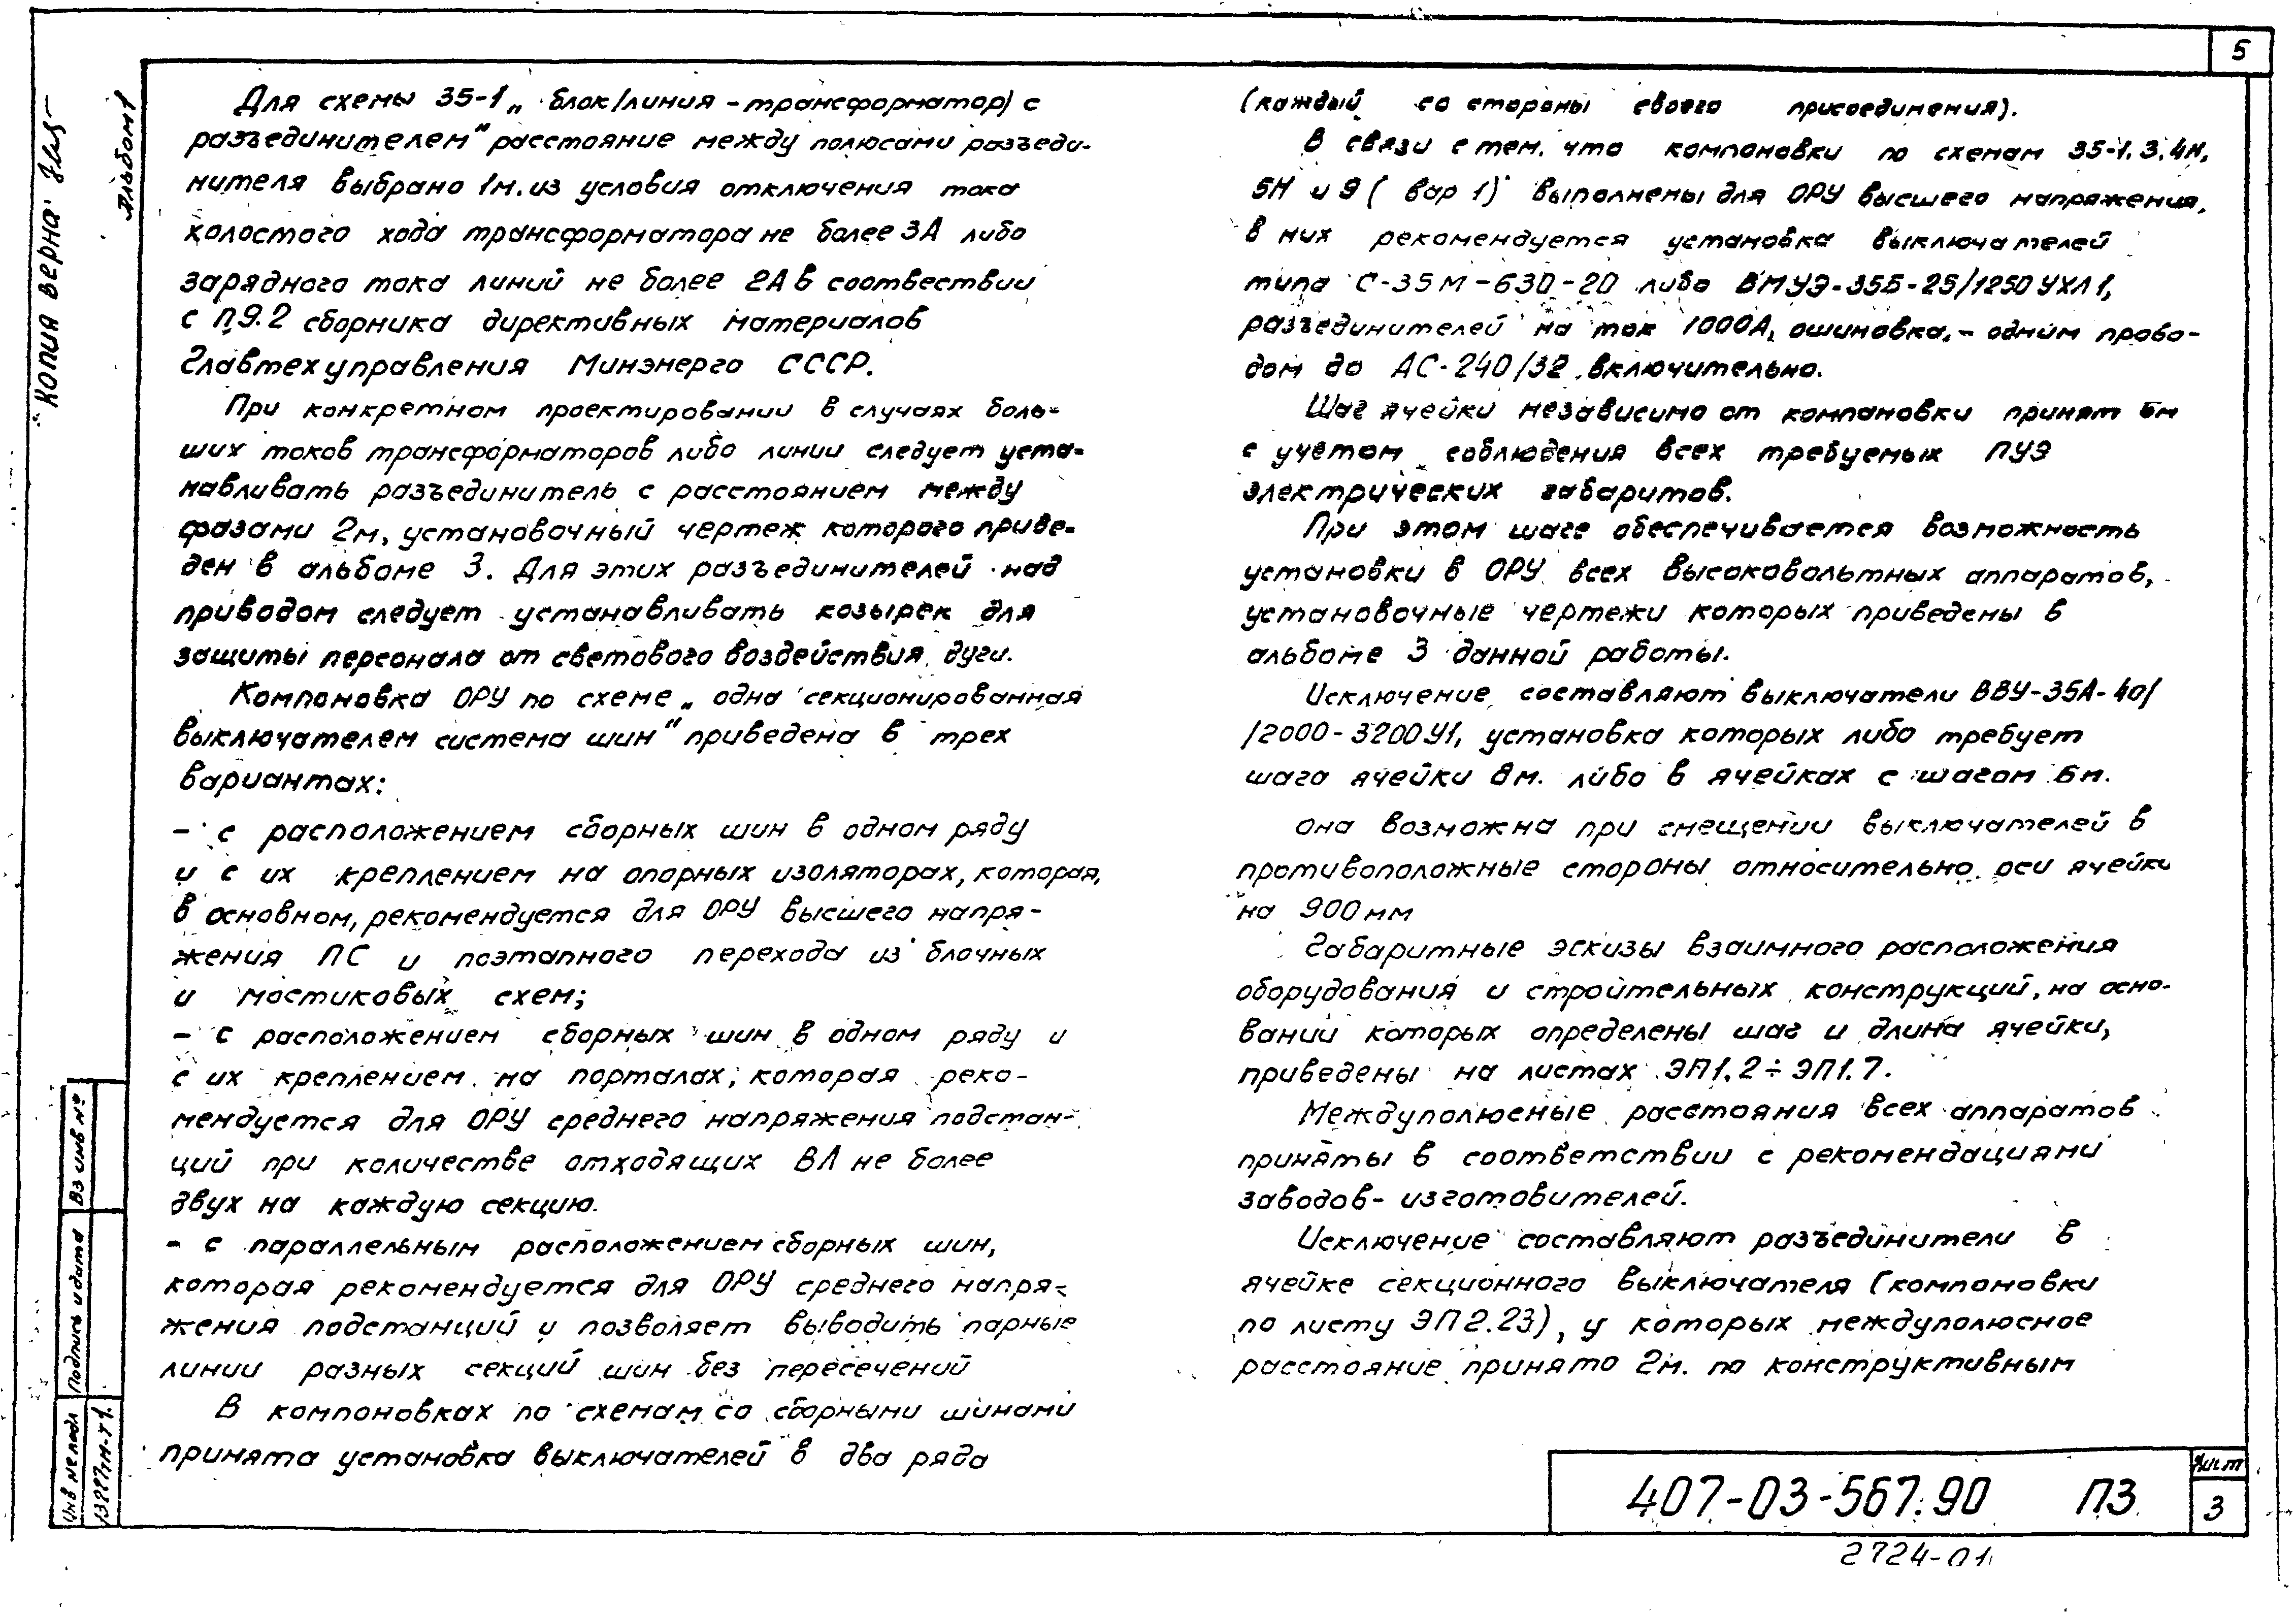 5
Копия верна
Альбом 1
Для схемы 35-1 „блок/линия - трансформатор) с
разъединителем“ расстояние между полюсами разъеди-
нителя выбрано 1м. из условия отключения тока
холостого хода трансформатора не более 3А либо
зарядного тока линий не более 2А в соотвествии
с п.9.2 сборника директивных материалов
Главтехуправления Минэнерго СССР.
При конкретном проектировании в случаях боль-
ших токов трансформаторов либо линии следует уста-
навливать разъединитель с расстоянием между
фазами 2м, установочный чертеж которого приве-
ден в альбоме 3. Для этих разъединителей над
приводом следует устанавливать козырек для
защиты персонала от светового воздействия дуги.
Компановка ОРУ по схеме „ одна секционированная
выключателем система шин“ приведена в трех
вариантах:
- с расположением сборных шин в одном ряду
и с их креплением на опорных изоляторах, которая,
в основном, рекомендуется для ОРУ высшего напря-
жения ПС и поэтапного перехода из блочных
и мостиковых схем;
- с расположением сборных шин в одном ряду и
с их креплением на порталах, которая реко-
мендуется для ОРУ среднего напряжения подстан-
ций при количестве отходящих ВЛ не более
двух на каждую секцию.
- с параллельным расположением сборных шин,
которая рекомендуется для ОРУ среднего напря-
жения подстанций и позволяет выводить парные
линии разных секций шин без пересечений
В компоновках по схемам со сборными шинами
принята установка выключателей в два ряда
(каждый со стороны своего присоединения).
В связи с тем, что компановки по схемам 35-1, 3, 4Н,
5Н и 9 ( вар 1) выполнены для ОРУ высшего напряжения,
в них рекомендуется установка выключателей
типа С-35М-630-20 либо ВМУЭ-35Б-25/1250 УХЛ1,
разъединителей на ток 1000А, ошиновка, - одним прово-
дом до АС-240/32 включительно.
Шаг ячейки независимо от компановки принят 6м
с учетом соблюдения всех требуемых ПУЭ
электрических габаритов.
При этом шаге обеспечивается возможность
установки в ОРУ всех высоковольтных аппаратов,
установочные чертежи которых приведены в
альбоме 3 данной работы.
Исключение составляют выключатели ВВУ-35А-40/
/2000-3200У1, установка которых либо требует
шага ячейки 8м. либо в ячейках с шагом 6м.
она возможна при смещении выключателей в
противоположные стороны относительно оси ячейки
на 900мм
Габаритные эскизы взаимного расположения
оборудования и строительных конструкций, на осно-
вании которых определены шаг и длина ячейки,
приведены на листах ЭП1.2÷ЭП1.7.
Междуполюсные расстояния всех аппаратов
приняты в соответствии с рекомендациями
заводов-изготовителей.
Исключение составляют разъединители в
ячейке секционного выключателя (компоновки
по листу ЭП2.23), у которых междуполюсное
расстояние принято 2м. по конструктивным
Вз инв №
Подпись и дата
Инв № подл
13227тм-т1.
407-03-567.90 ПЗ
Лист
3
2724-01